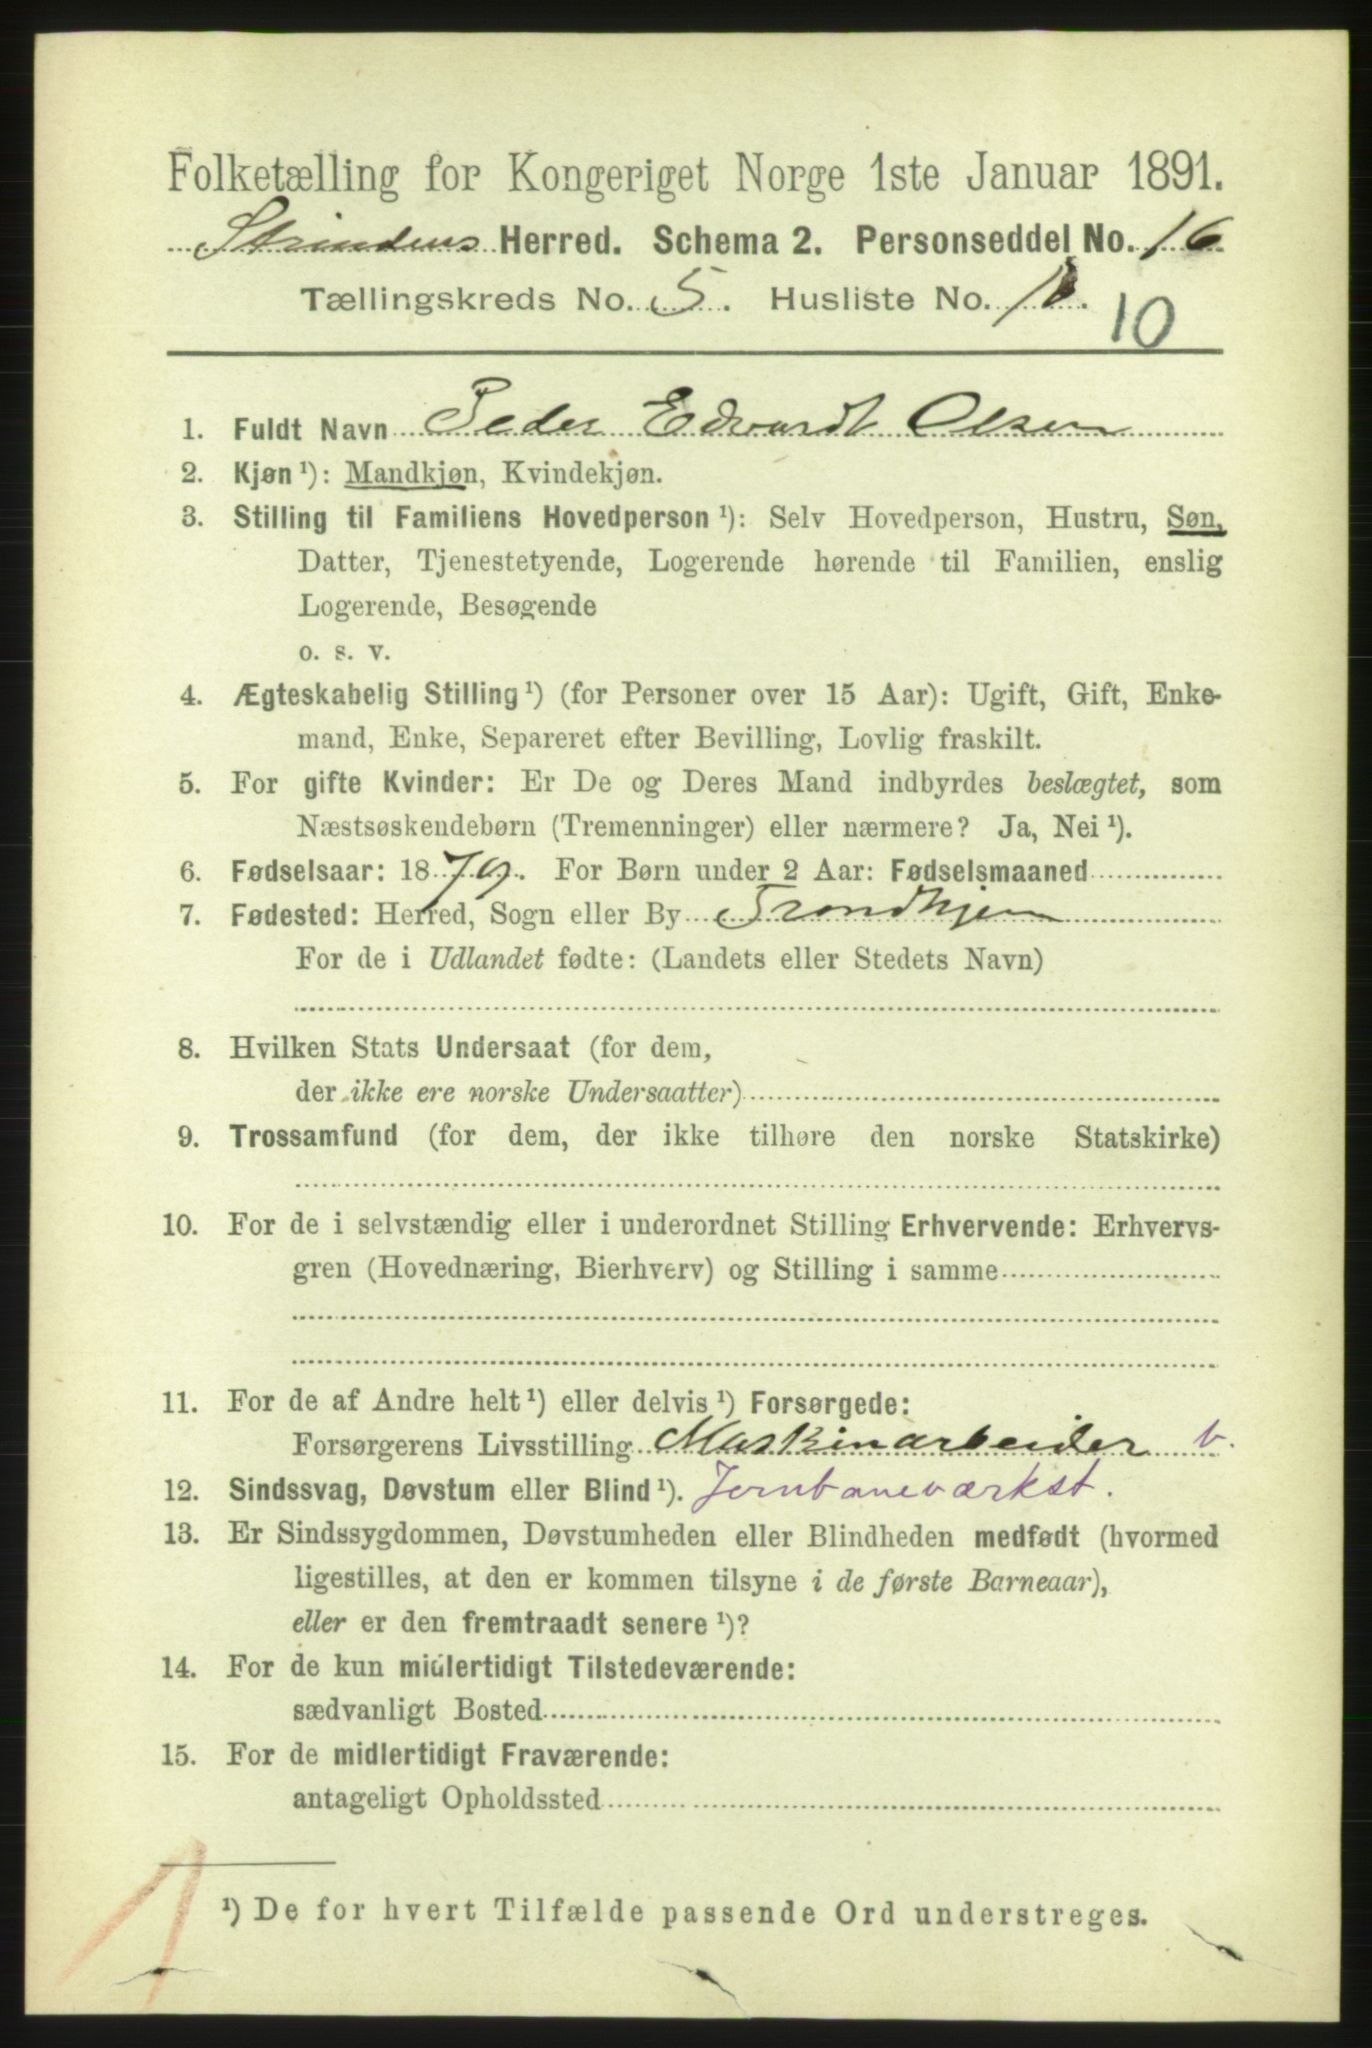 Folketælling for Kongeriget Norge 1ste Januar 1891.
Strindens Herred. Schema 2. Personseddel No. 16
Tællingskreds No. 5. Husliste No. 10.
10
1. Fuldt Navn Peder Edvardt Olsen
2. Kjøn ¹): Mandkjøn, Kvindekjøn.
3. Stilling til Familiens Hovedperson ¹): Selv Hovedperson, Hustru, Søn,
Datter, Tjenestetyende, Logerende hørende til Familien, enslig
Logerende, Besøgende
o. s. v.
4. Ægteskabelig Stilling ¹) (for Personer over 15 Aar): Ugift, Gift, Enke-
mand, Enke, Separeret efter Bevilling, Lovlig fraskilt.
5. For gifte Kvinder: Er De og Deres Mand indbyrdes beslægtet, som
Næstsøskendebørn (Tremenninger) eller nærmere? Ja, Nei ¹).
6. Fødselsaar: 1879. For Børn under 2 Aar: Fødselsmaaned
7. Fødested: Herred, Sogn eller By Trondhjem
For de i Udlandet fødte: (Landets eller Stedets Navn)
8. Hvilken Stats Undersaat (for dem,
der ikke ere norske Undersaatter)
9. Trossamfund (for dem, der ikke tilhøre den norske Statskirke)
10. For de i selvstændig eller i underordnet Stilling Erhvervende: Erhvervs-
gren (Hovednæring, Bierhverv) og Stilling i samme
11. For de af Andre helt ¹) eller delvis ¹) Forsørgede:
Forsørgerens Livsstilling Maskinarbeider v.
12. Sindssvag, Døvstum eller Blind ¹). Jernbaneværkst.
13. Er Sindssygdommen, Døvstumheden eller Blindheden medfødt (hvormed
ligestilles, at den er kommen tilsyne i de første Barneaar),
eller er den fremtraadt senere ¹)?
14. For de kun midlertidigt Tilstedeværende:
sædvanligt Bosted
15. For de midlertidigt Fraværende:
antageligt Opholdssted
1
¹) De for hvert Tilfælde passende Ord understreges.